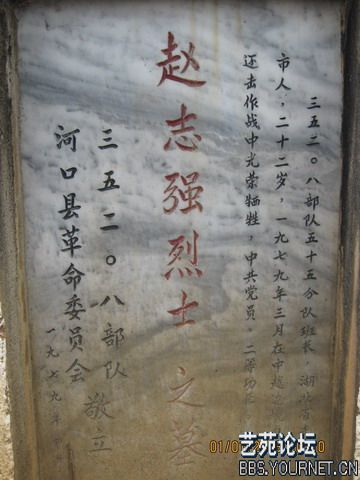 三五二〇八部队五十五分队班长 湖北省
市人，二十二岁，一九七九年三月在中越边
还击作战中光荣牺牲，中共党员 二等功
赵志强烈士之墓
三五二〇八部队
敬立
河口县革命委员会
一九七九年
艺苑论坛
BBS.YOURNET.CN